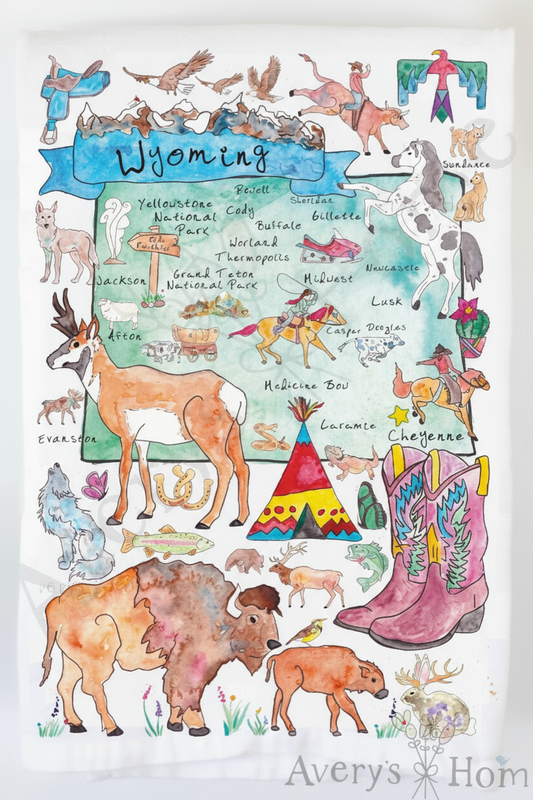 Wyoming
Sundance
Powell
Sheridan
Yellostone
National
Park
Cody
Gillette
Buffale
Worland
Thermopolis
Newcastle
Jackson
Grand Teton
National Park
Midwest
Lusk
Afton
Casper
Douglas
Medicine Bow
Evanston
Laramie
Cheyenne
Avery's Hom